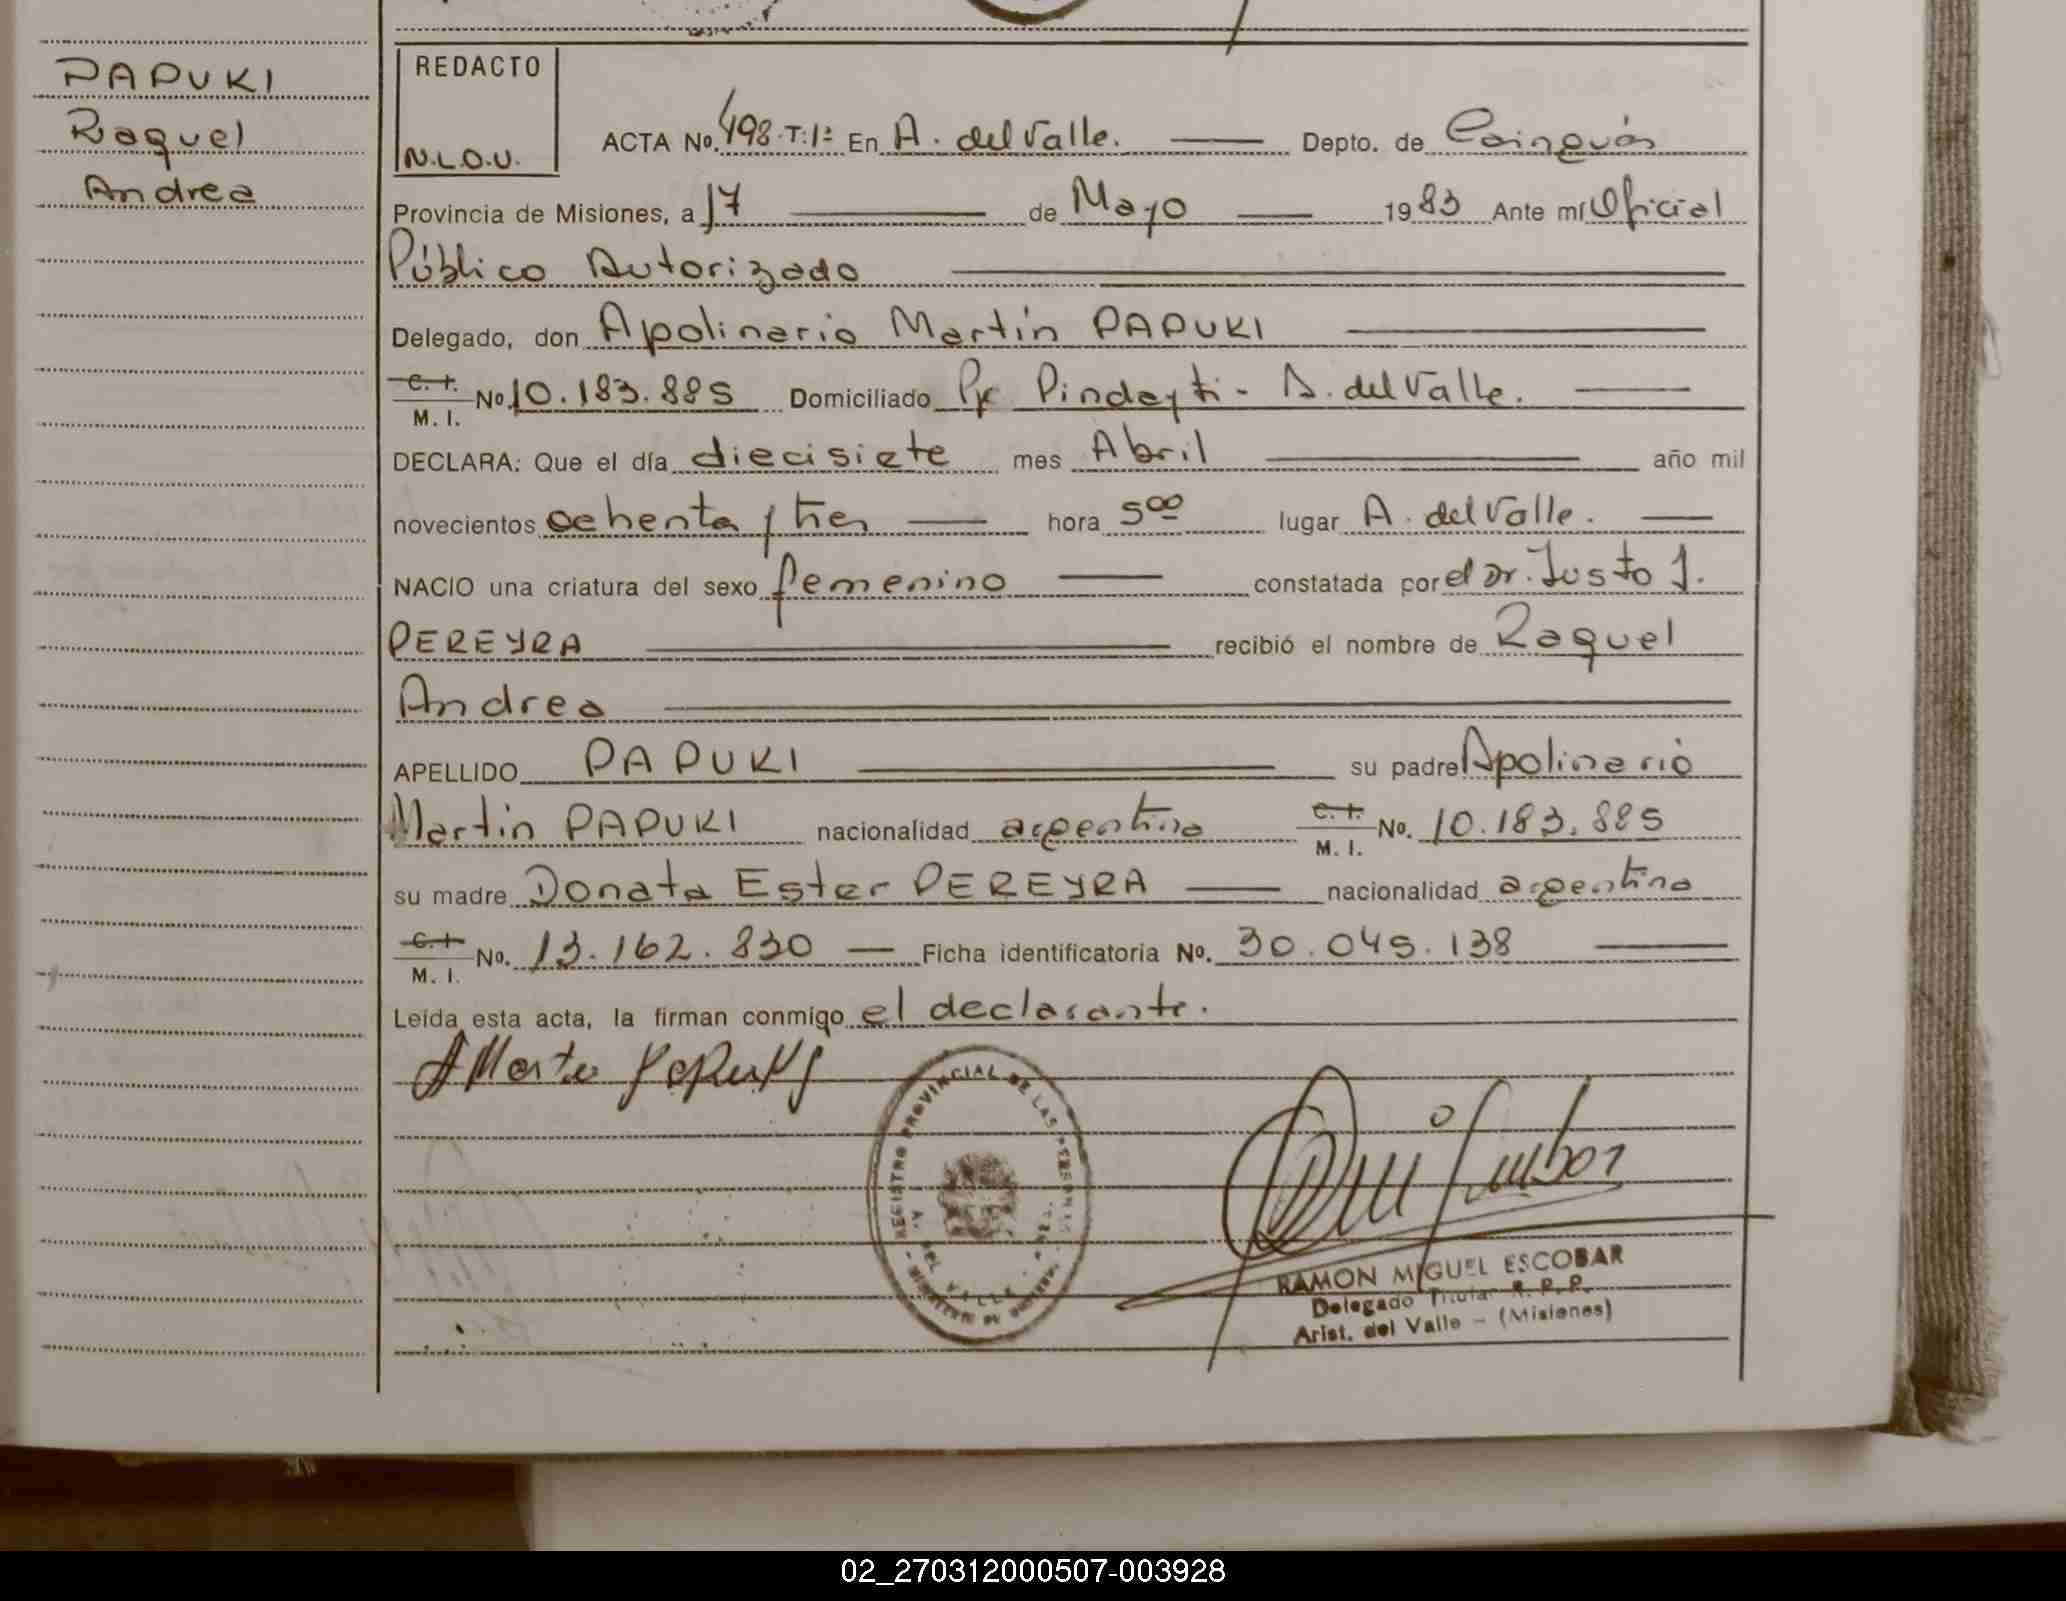 PAPUKI
Raquel
Andrea
REDACTO
N.L.O.U.
ACTA No. 498-T:1º En A. del Valle. Depto. de Cainguás
Provincia de Misiones, a 17 de Mayo 1983 Ante mí Oficial
Público Autorizado
Delegado, don Apolinario Martín PAPUKI
C. I. M. I. No. 10.183.885 Domiciliado Pje Pindayti - A. del Valle.
DECLARA: Que el día diecisiete mes Abril año mil
novecientos ochenta y tres hora 5oo lugar A. del Valle.
NACIO una criatura del sexo femenino constatada por el Dr. Justo J.
PEREYRA recibió el nombre de Raquel
Andrea
APELLIDO PAPUKI su padre Apolinario
Martín PAPUKI nacionalidad argentina C. I. M. I. No. 10.183.885
su madre Donata Ester PEREYRA nacionalidad argentina
C. I. M. I. No. 13.162.830 Ficha identificatoria No. 30.045.138
Leída esta acta, la firman conmigo el declarante.
REGISTRO PROVINCIAL DE LAS PERSONAS
A. DEL VALLE
RAMON MIGUEL ESCOBAR
Delegado Titular R. P. P.
Arist. del Valle - (Misiones)
02_270312000507-003928